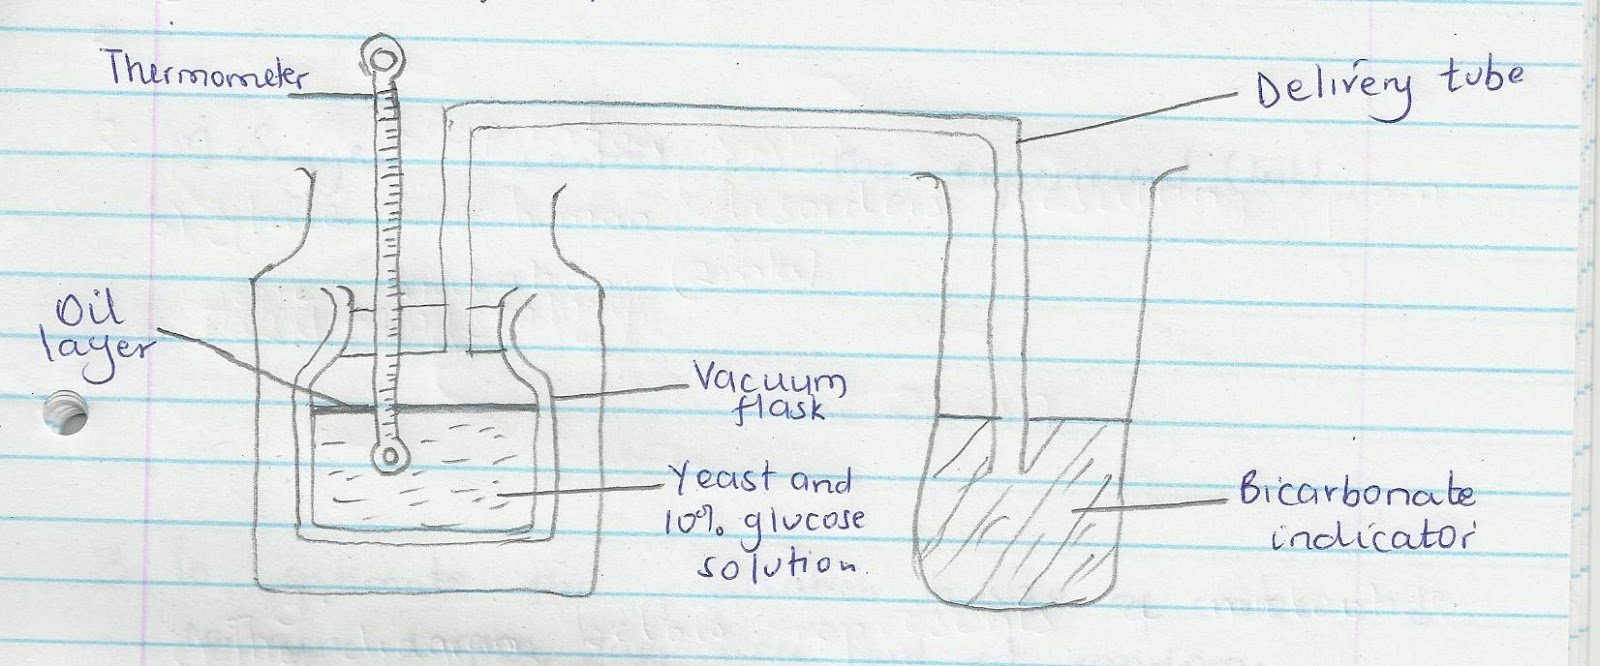 Thermometer
Delivery tube
Oil
layer
Vacuum
flask
Yeast and
10% glucose
solution.
Bicarbonate
indicator